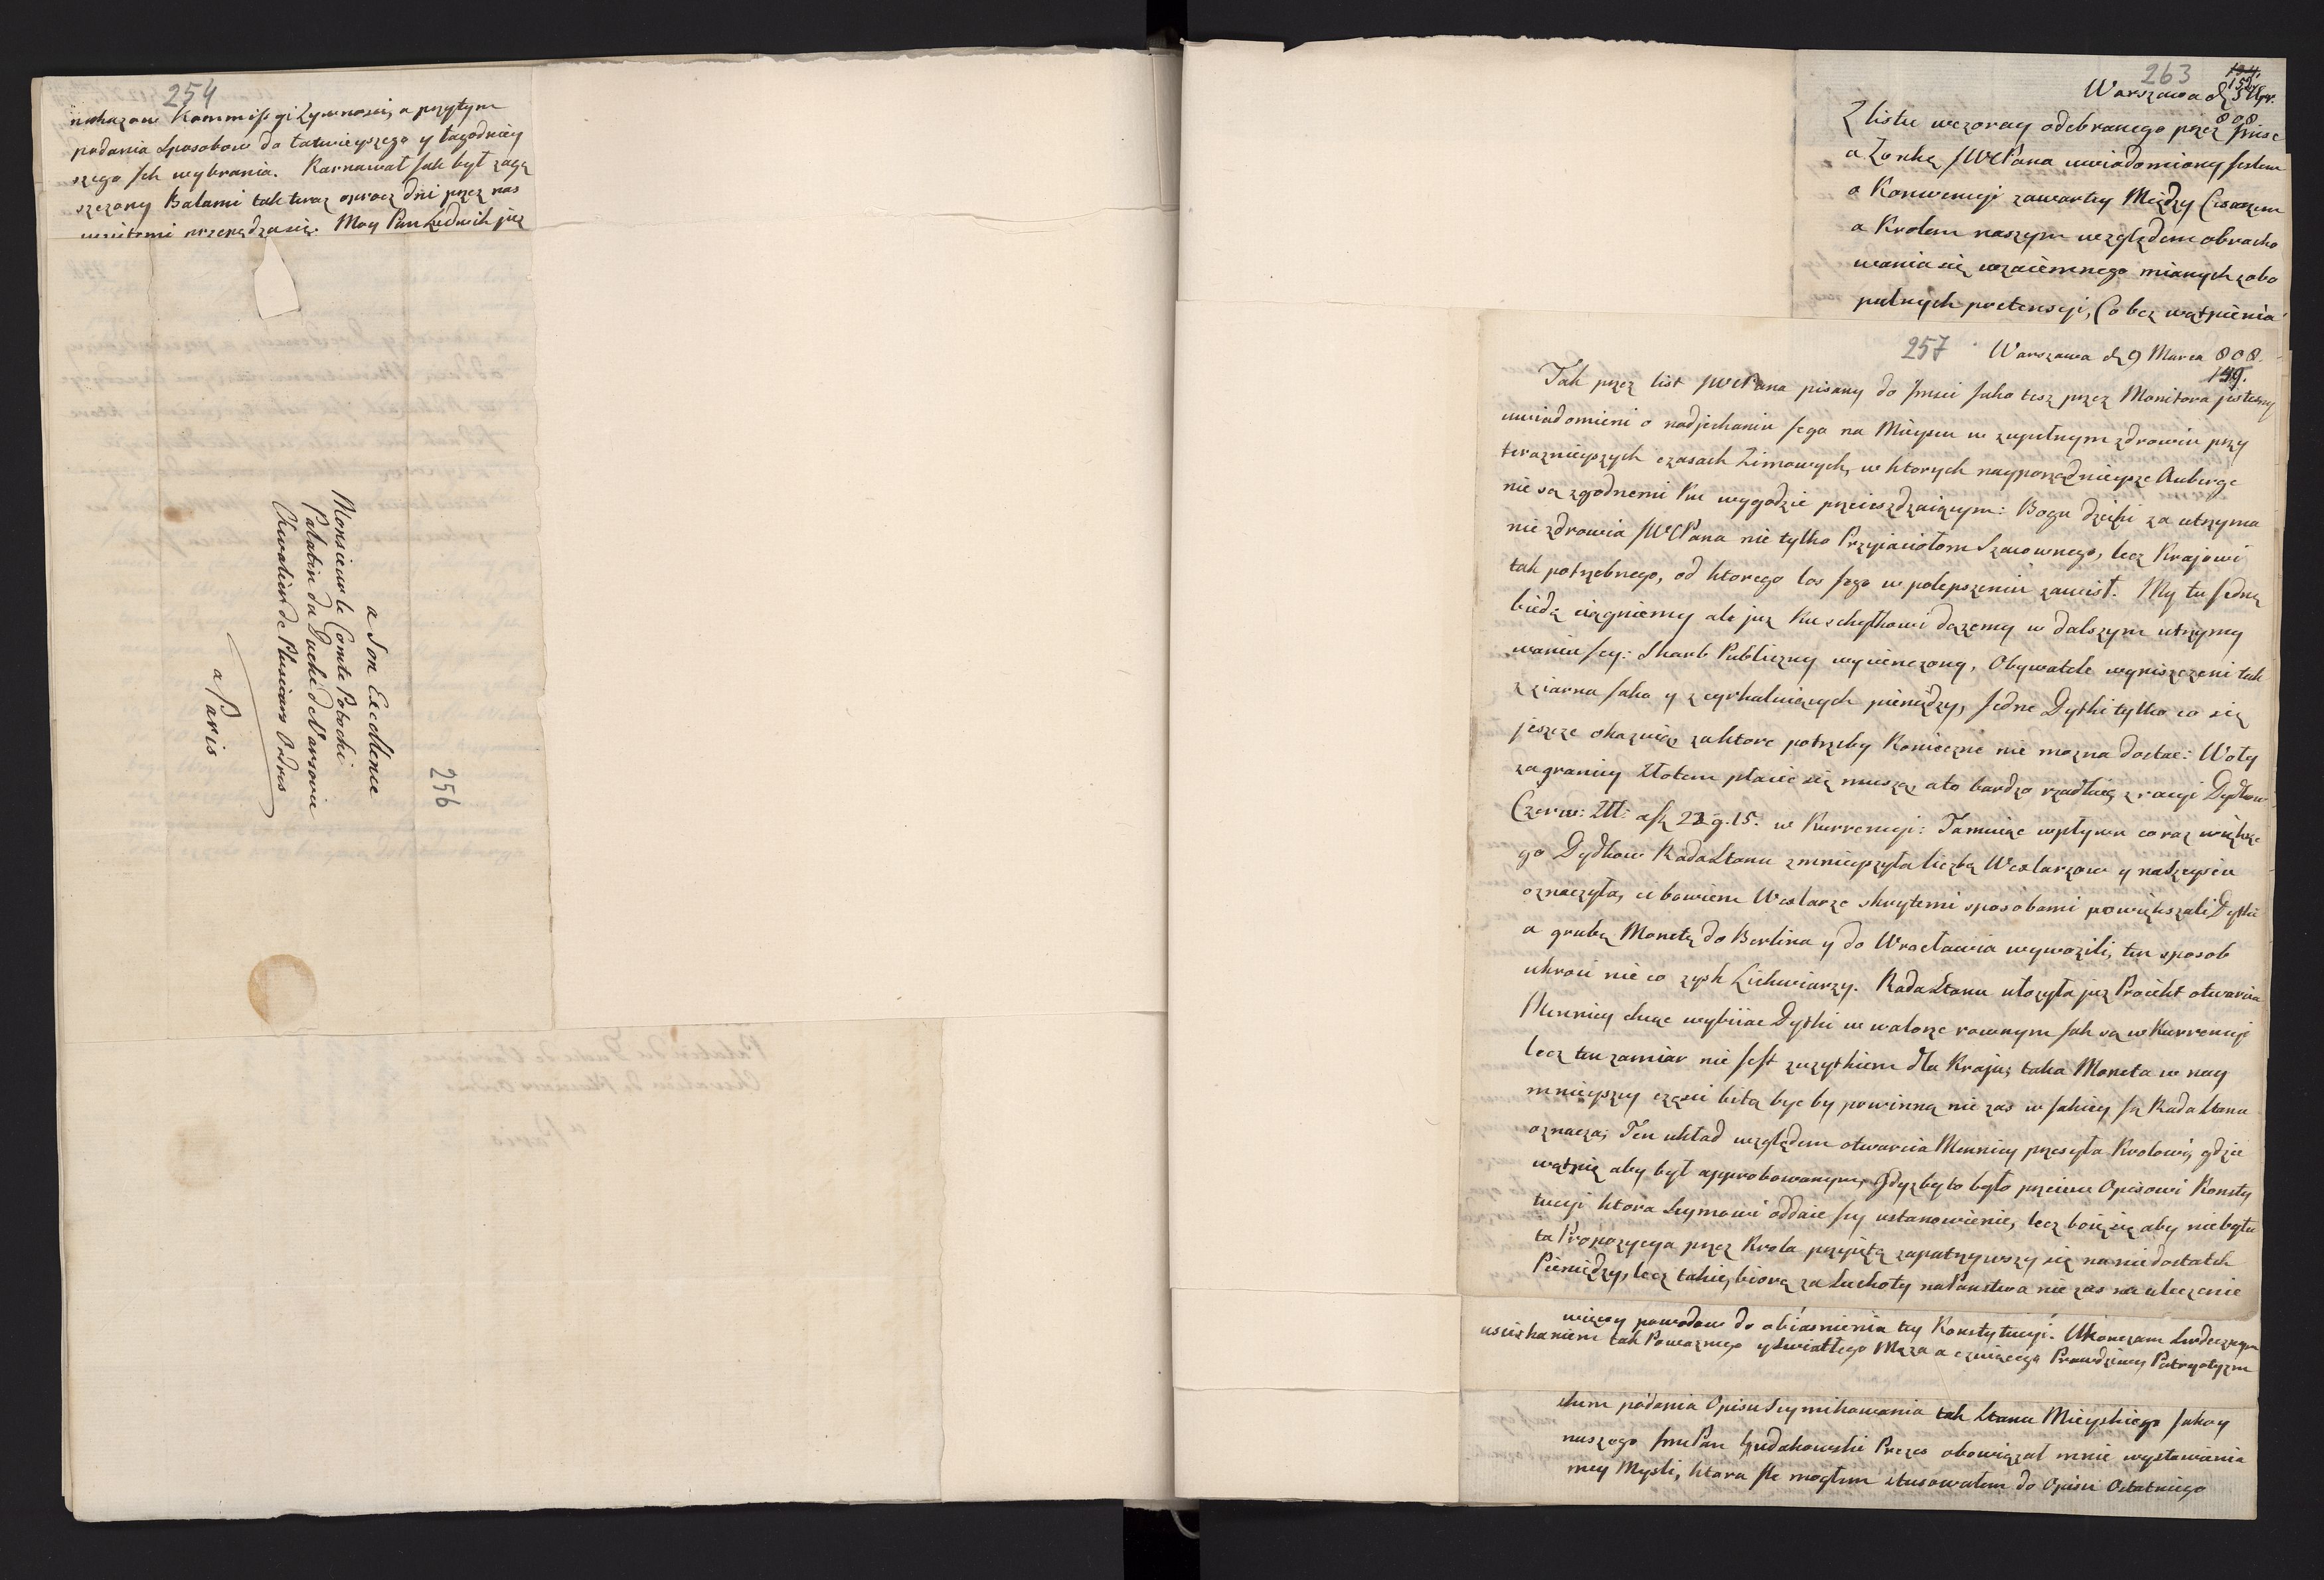 254
nakazow Kommissyi Zywnosci, a przytym
podania Sposobow do łatwieyszego y łagodniey
szego Ich wybrania. Karnawał jak był zagę
szczony Balami tak teraz oprocz dni przez nas
Moy Pan Ludwik już
a Son Excellence
Monsieur le Comte Potocki
Palatin du Duché de Varsovie
Chevalier de Plusieurs Ordres
a Paris
256
263
152.
Warszawa d 5 Apr.
808
Z listu wczoray odebranego przez
a Zonkę JWPana uwiadomiony jestem
o Konwencyi zawartey Między Cesarzem
a Krolem naszym względem obracho
wania się wzaiemnego mianych zobo
pulnych pretensyi, Co bez wątpienia
257 Warszawa d 9 Marca 808.
149.
Tak przez list JWPana pisany do Jmsci jako tesz przez Monitora jestesmy
uwiadomieni o nadjechaniu Jego na Mieysce w zupełnym zdrowiu przy
teraznieyszych czasach Zimowych, w ktorych nayporządnieysze Auberge
nie są zgodnemi Ku wygodzie przeieszdzaiącym: Bogu dzięki za utrzyma
nie zdrowia JWPana nie tylko Przyiaciołom Szacownego, lecz Krajowi
tak potrzebnego, od ktorego los Jego w polepszeniu zawisł. My tu jedną
biedę ciągniemy ale juz Ku schyłkowi dązemy w dalszym utrzymy
waniu Jey: Skarb Publiczny wycienczony, Obywatele wyniszczeni tak
z ziarna jako y z cyrkuluiących pieniędzy, jedne Dytki tylko co się
jeszcze okazuią za ktore potrzeby Konieczne nie mozna dostac: Woły
zagranicy złotem płacic się muszą, a to bardzo rzadkie z racyi Dydkow
Czerw: Zll: a fl 22 g. 15. w Kurrencyi: Tamuiąc wpływ coraz większe
go Dydkow Rada Stanu zmnieyszyła liczbę Wexlarzow y naszcyscu
oznaczyła, ci bowiem Wexlarze skrytemi sposobami powiększali Dytki
a grubą Monetę do Berlina y do Wrocławia wywozili, ten sposob
ukroci nieco zysk Lichwiarzy. Rada Stanu ułozyła juz Proiekt otwarcia
Mennicy chcąc wybiiac Dytki w walorze rownym jak są w Kurrencyi
lecz ten zamiar nie jest zuzytkiem dla Kraju, taka Moneta w nay
mnieyszey częsci bitą byc by powinną nie zas w jakiey ją Rada Stanu
oznacza; Ten układ względem otwarcia Mennicy przesyła Krolowi, gdzie
wątpię aby był approbowanym, Gdyzby to było przeciw Opisowi Konsty
tucyi ktora Seymowi oddaie jey ustanowienie, lecz boię się aby niebyła
ta Propozycya przez Krola przyiętą zapatrzywszy się na niedostatek
Pieniędzy, lecz takie biorą za Suchoty na Panstwa nie zas na uleczenie
więcey powodow do obiasnienia tey Konstytucyi. Ukonczam Serdecznym
usciskaniem tak Powaznego y Swiatłego Męza a czuiącego Prawdziwy Patryotyzm
podania Opisu Seymikowania tak Stanu Mieyskiego jako y
naszego Jme Pan Gudakowski Prezes obowiązał mnie wystawienia
mey Mysli, ktora ile mogłem stusowałem do Opisu Ostatniego